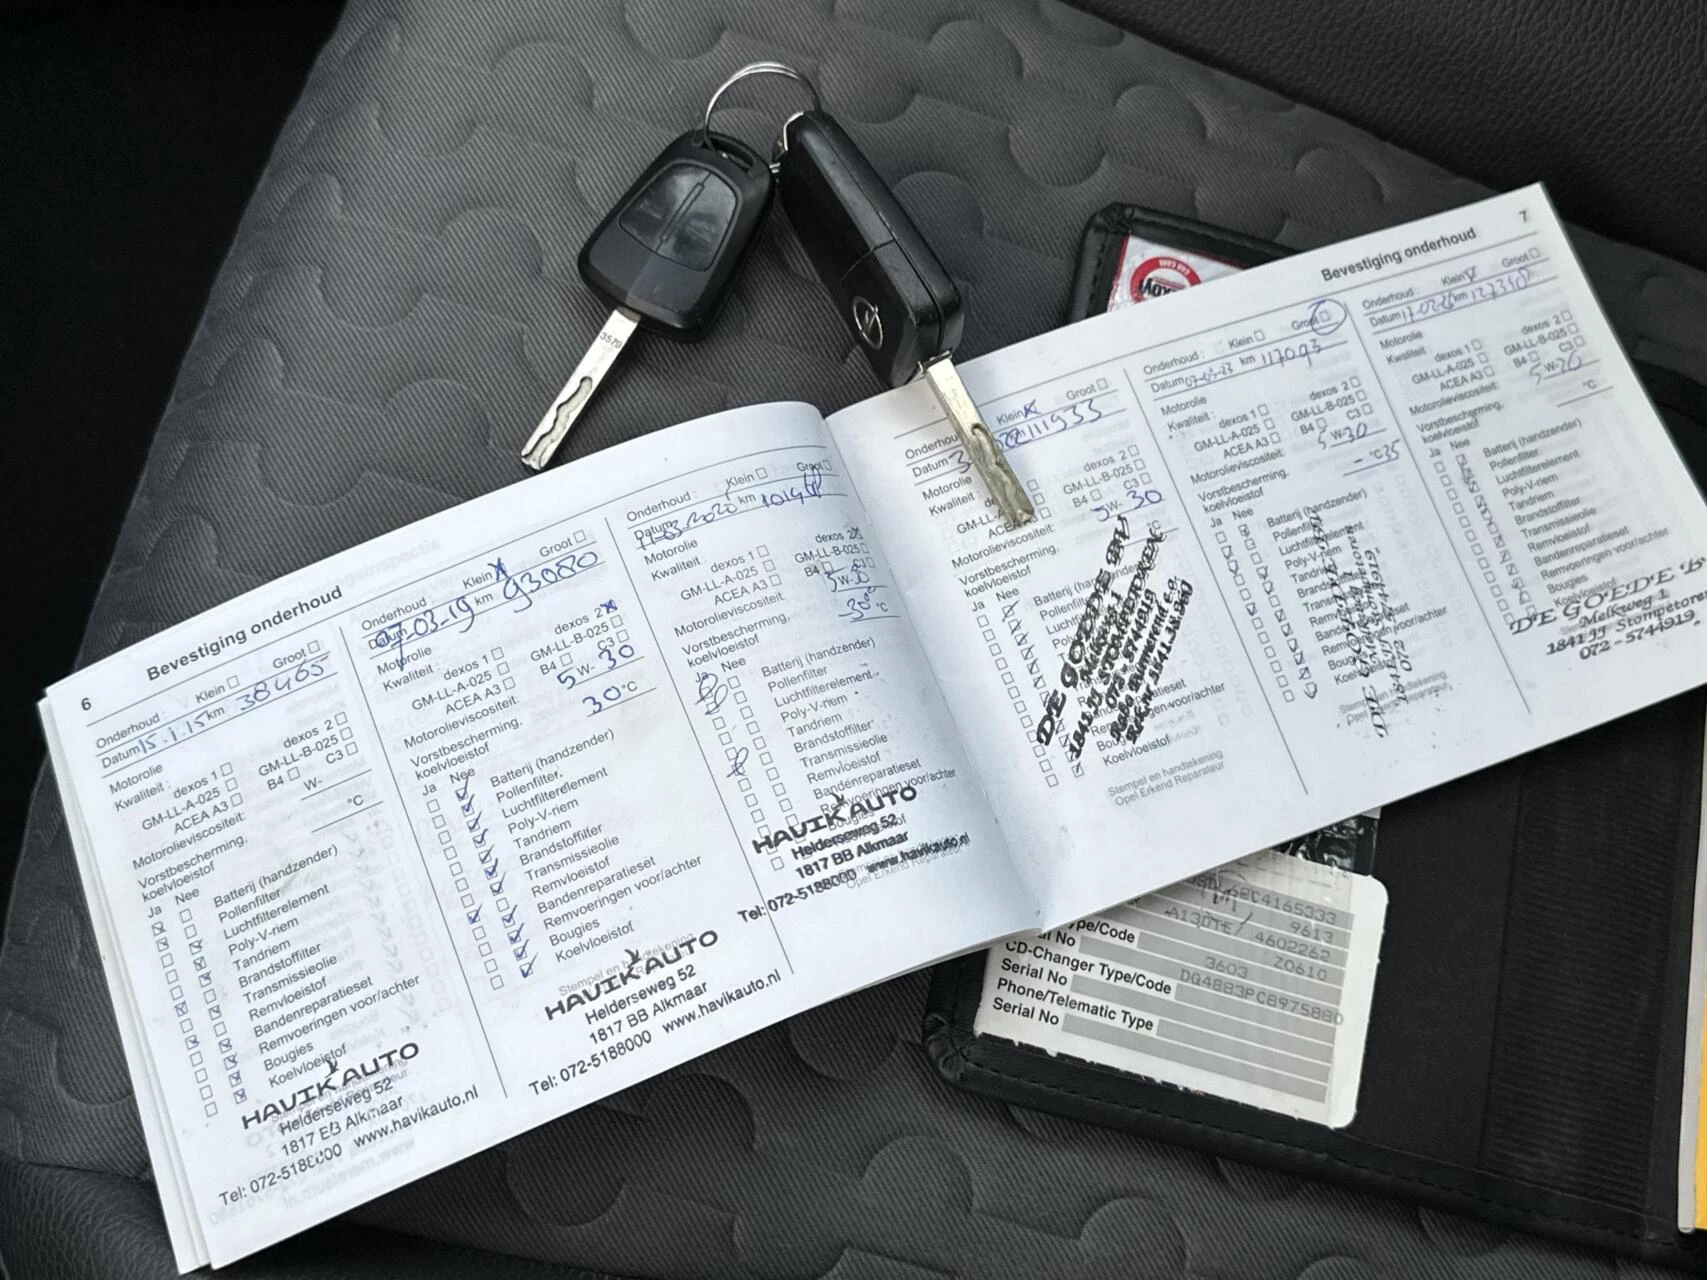 6
Bevestiging onderhoud
Onderhoud : Klein Groot
Datum 15.1.15 km 38465
Motorolie
Kwaliteit : dexos 1 dexos 2
GM-LL-A-025 GM-LL-B-025
ACEA A3 B4 C3
Motorolieviscositeit: W-
Vorstbescherming,
koelvloeistof °C
Ja Nee
Batterij (handzender)
Pollenfilter
Luchtfilterelement
Poly-V-riem
Tandriem
Brandstoffilter
Transmissieolie
Remvloeistof
Bandenreparatieset
Remvoeringen voor/achter
Bougies
Koelvloeistof
HAVIK AUTO
Helderseweg 52
1817 BB Alkmaar
Tel: 072-5188000 www.havikauto.nl
Onderhoud : Klein Groot
Datum 07-03-19 km 93080
Motorolie
Kwaliteit : dexos 1 dexos 2
GM-LL-A-025 GM-LL-B-025
ACEA A3 B4 C3
Motorolieviscositeit: 5 W- 30
Vorstbescherming,
koelvloeistof 30 °C
Ja Nee
Batterij (handzender)
Pollenfilter
Luchtfilterelement
Poly-V-riem
Tandriem
Brandstoffilter
Transmissieolie
Remvloeistof
Bandenreparatieset
Remvoeringen voor/achter
Bougies
Koelvloeistof
Stempel en handtekening
HAVIK AUTO
Helderseweg 52
1817 BB Alkmaar
Tel: 072-5188000 www.havikauto.nl
Onderhoud : Klein Groot
Datum km
Motorolie
Kwaliteit : dexos 1 dexos 2
GM-LL-A-025 GM-LL-B-025
ACEA A3 B4 C3
Motorolieviscositeit: 5 W-30
Vorstbescherming,
koelvloeistof 30° °C
Ja Nee
Batterij (handzender)
Pollenfilter
Luchtfilterelement
Poly-V-riem
Tandriem
Brandstoffilter
Transmissieolie
Remvloeistof
Bandenreparatieset
Remvoeringen voor/achter
Bougies
HAVIK AUTO
Helderseweg 52
1817 BB Alkmaar
Tel: 072-5188000 www.havikauto.nl
Opel Erkend Reparateur
7
Bevestiging onderhoud
Klein Groot
Datum 111933
Motorolie
Kwaliteit : dexos 2
GM-LL-B-025
B4 C3
Motorolieviscositeit: 5W- 30
Vorstbescherming,
koelvloeistof
Ja Nee
Koelvloeistof
DE GOEDE BV
Melkweg 1
072-5744919
Stempel en handtekening
Opel Erkend Reparateur
Onderhoud : Klein Groot
Datum 07-03-23 km 117093
Motorolie
Kwaliteit : dexos 1 dexos 2
GM-LL-A-025 GM-LL-B-025
ACEA A3 B4 C3
Motorolieviscositeit: 5 W-30
Vorstbescherming,
koelvloeistof - °C 35
Ja Nee
Batterij (handzender)
Pollenfilter
Luchtfilterelement
Onderhoud : Klein Groot
Datum km
Motorolie
Kwaliteit : dexos 1 dexos 2
GM-LL-A-025 GM-LL-B-025
ACEA A3 B4 C3
Motorolieviscositeit: 5 W-20
Vorstbescherming,
koelvloeistof °C
Ja Nee
Batterij (handzender)
Pollenfilter
Luchtfilterelement
Poly-V-riem
Tandriem
Brandstoffilter
Transmissieolie
Remvloeistof
Bandenreparatieset
Remvoeringen voor/achter
Bougies
Koelvloeistof
DE GOEDE B
Melkweg 1
1841 JJ Stompetoren
072 - 5744919
3579
CAR CARE
9613
4602262
Z0610
3603
CD-Changer Type/Code
Serial No DG4883PC8975880
Phone/Telematic Type
Serial No